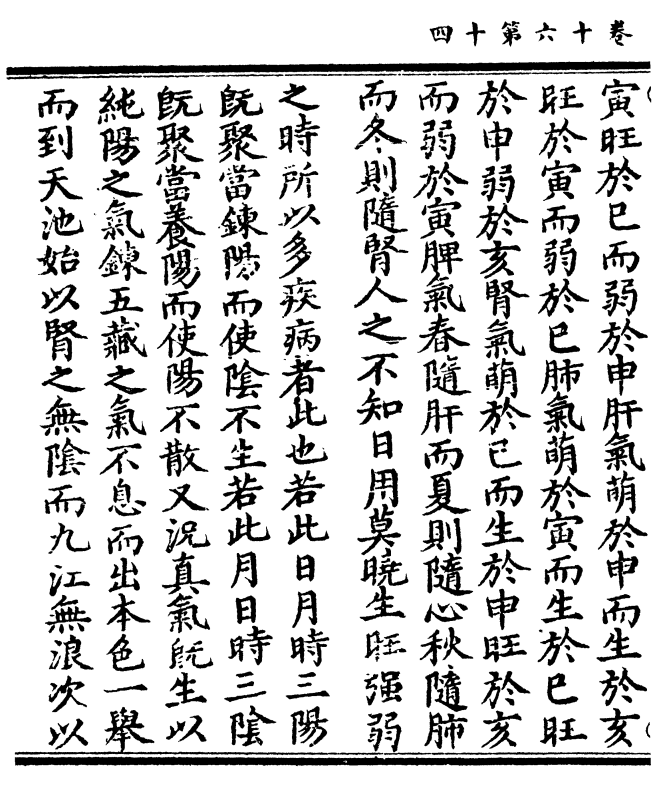 卷十六第十四
寅旺於巳而弱於申肝氣萌於申而生於亥
旺於寅而弱於巳肺氣萌於寅而生於巳旺
於申弱於亥腎氣萌於巳而生於申旺於亥
而弱於寅脾氣春隨肝而夏則隨心秋隨肺
而冬則隨腎人之不知日用莫曉生旺强弱
之時所以多疾病者此也若此日月時三陽
既聚當鍊陽而使陰不生若此月日時三陰
既聚當養陽而使陽不散又況真氣既生以
純陽之氣鍊五藏之氣不息而出本色一舉
而到天池始以腎之無陰而九江無浪次以